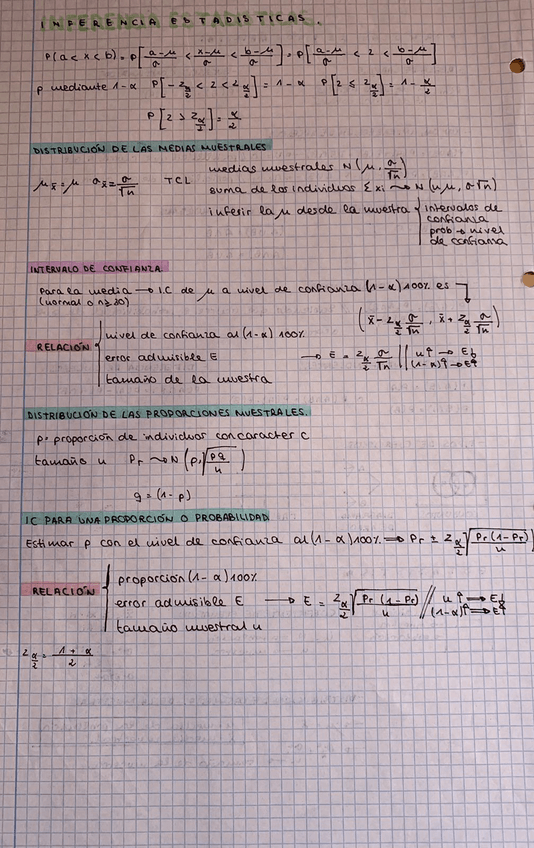 INFERENCIA ESTADISTICAS.
P(a < x < b) = P[a-μ/σ < x-μ/σ < b-μ/σ] = P[a-μ/σ < z < b-μ/σ]
p mediante 1-α P[-zα/2 < z < zα/2] = 1-α P[z ≤ zα/2] = 1-α/2
P[z > zα/2] = α/2
DISTRIBUCIÓN DE LAS MEDIAS MUESTRALES
μx̄ = μ σx̄ = σ/√n TCL
medias muestrales N(μ, σ/√n)
suma de los individuos Σxi → N(nμ, σ√n)
inferir la μ desde la muestra { intervalos de
confianza
prob → nivel
de confianza
INTERVALO DE CONFIANZA
Para la media → I.C de μ a nivel de confianza (1-α)100% es
(normal o n≥30)
(x̄ - zα/2 σ/√n , x̄ + zα/2 σ/√n)
RELACIÓN
nivel de confianza al (1-α)100%
error admisible E → E = zα/2 σ/√n // n↑ → E↓
(1-α)↑ → E↑
tamaño de la muestra
DISTRIBUCIÓN DE LAS PROPORCIONES MUESTRALES.
p: proporción de individuos con caracter c
tamaño n Pr → N(p, √pq/n)
q = (1-p)
IC PARA UNA PROPORCIÓN O PROBABILIDAD
Estimar p con el nivel de confianza al (1-α)100% ⇒ Pr ± zα/2 √Pr(1-Pr)/n
RELACIÓN
proporción (1-α)100%
error admisible E → E = zα/2 √Pr(1-Pr)/n // n↑ ⇒ E↓
(1-α)↑ ⇒ E↑
tamaño muestral n
zα/2 = 1+α/2